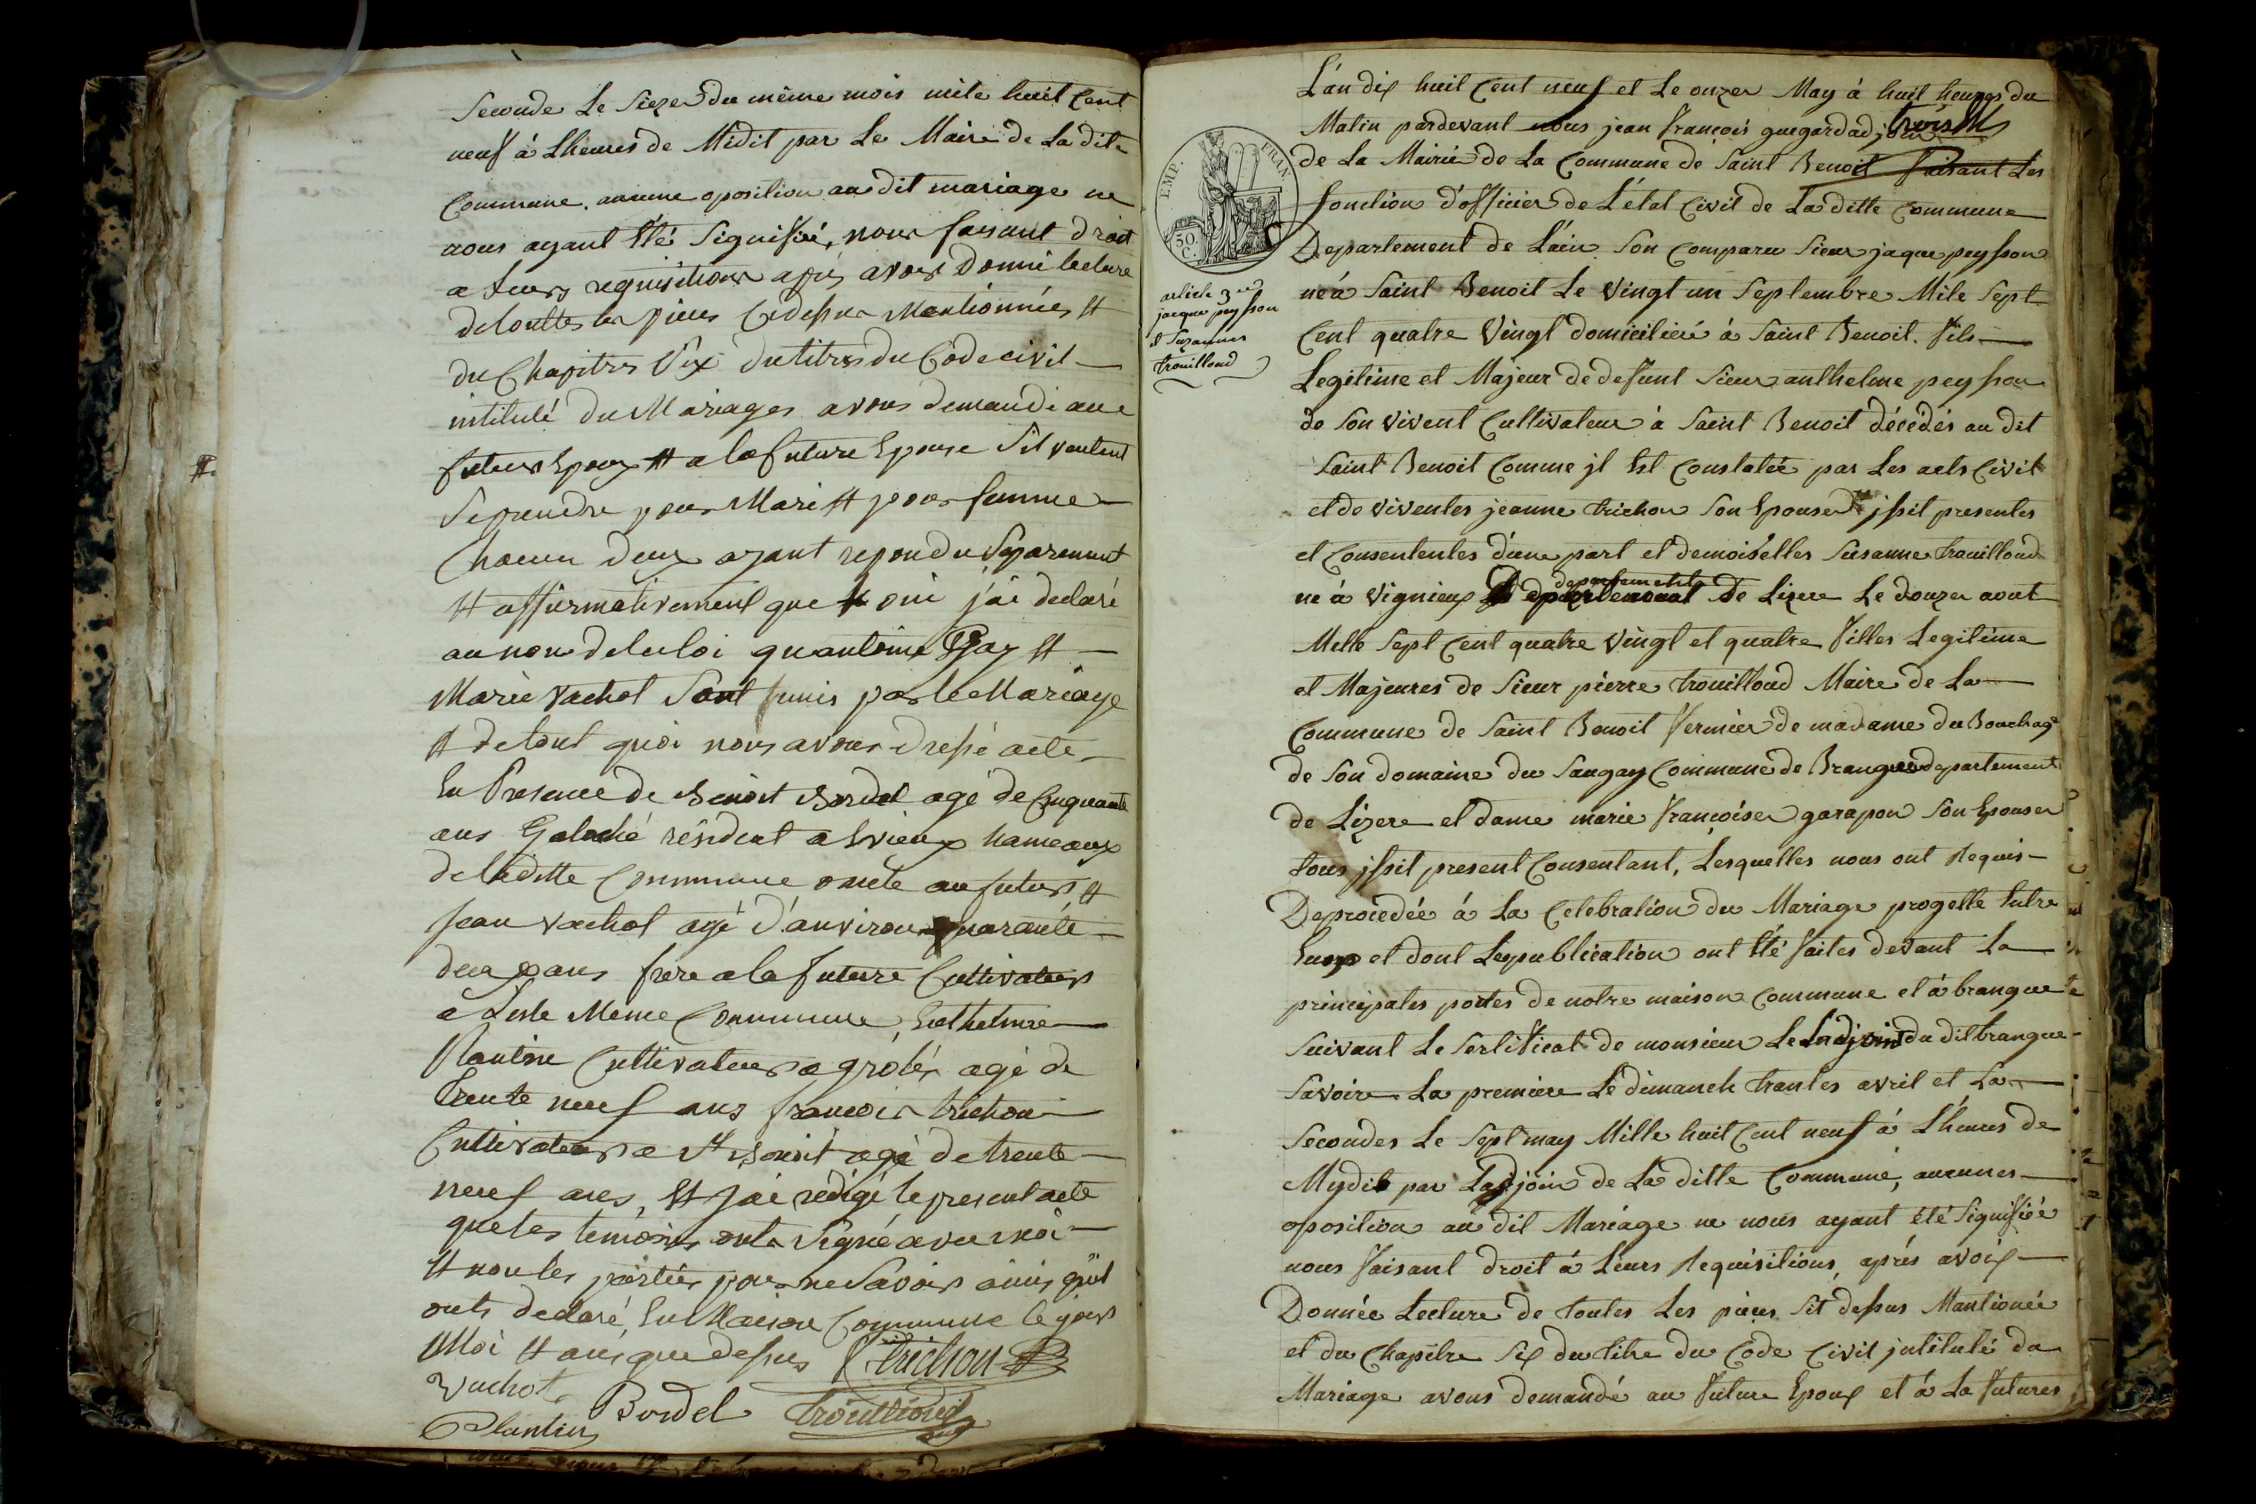 Seconde le Sieze du même mois mile huit Cent
neuf à Lheures de Midit par Le Maire de La dite
Commune. aucune oposition au dit mariage ne
nous ayant Eté Signifiée, nous faisant droit
a Leurs requisitions après avoir Donné lecture
de touttes les pieces Cy dessus Mentionnées Et
du Chapitre Six du titre du Code civil
intitulé du Mariages avons demandé au
futur Epoux Et a la future Epouse S'il veulent
Se prendre pour Mari Et pour femme
Chacun Deux ayant repondu Séparement
Et affirmativement que oui j'ai declaré
au nom de la loi qu antoine Gay Et
Marie Vachot Sont unis par le Mariage
Et de tout quoi nous avons dressé acte
En Presence de Benoit Bordel agé de Cinquante
ans résident a Evieux hameaux
de laditte Commune oncle au futur Et
Jean Vachot agé d'anviron quarante
deux ans frere a la future Cultivateur
a Leste Meme Commune, Enthelme
Plantin Cultivateur a grolée agé de
Trente neuf ans francois trichon
Cultivateur a St Benoit agé de trente
neuf ans, Et J'ai redigé le present acte
que les temoins onts Signé avec moi
Et non les parties pour ne Savoir ainsi qu'il
onts declaré, En Maison Commune le jour
Moi Et an que dessus f trichon
Vachot
Bordel Trouilloud
Plantin
L'an dix huit Cent neuf et Le onze May à huit heures du
Matin pardevant nous jean françois guegard adjoin
de La Mairie de La Commune de Saint Benoit faisant Les
fonction d'officier de L'état Civil de La ditte Commune
Departement de L'ain Son Comparu Sieur jaque peysson
né à Saint Benoit Le Vingt un Septembre Mile Sept
Cent quatre Vingt domicilié à Saint Benoit. fils
Legitime et Majeur de defunt Sieur anthelme peysson
de Son vivent Cultivateur à Saint Benoit décédés au dit
Saint Benoit Comme jl Est Constatée par Les acts Civil
et de viventes jeanne trichon Son Epouse jssit presentes
et Consententes d'une part et demoiselles Susanne trouilloud
né à Vignieux departements De Lizere Le douze aout
Mille Sept Cent quatre Vingt et quatre filles Legitime
et Majeures de Sieur pierre trouilloud Maire de La
Commune de Saint Benoit fermier de madame du Bouchage
de Son domaine du Saugay Commune de Brangue departement
de Lizere et dame marie françoise garapon Son Epouse
tous jssit present Consentant, Lesquelles nous ont Requis
De procedée à La Celebration du Mariage progetté Entre
Eux et dont Les publication ont Eté faites devant La
principales portes de notre maison Commune et à brangue
Suivant Le Sertificat de monsieur Le Ladjoin du dit brangue
Savoire La premiere Le dimanch trantes avril et La
Secondes Le Sept may Mille huit Cent neuf à L'heures de
Mydit par Ladjoin de La ditte Commune, aucunes
oposition au dit Mariage ne nous ayant été Signifiée
nous faisant droit à Leurs Requisitions, après avoir
Donnée Lecture de toutes Les pieces Sit dessus Mantionée
et du Chapitre Six du titre du Code Civil jntitulé du
Mariage avons demandé au future Epoux et à La futures
EMP. FRAN.
50 C.
article 3
jacque peysson
et Suzanne
trouilloud